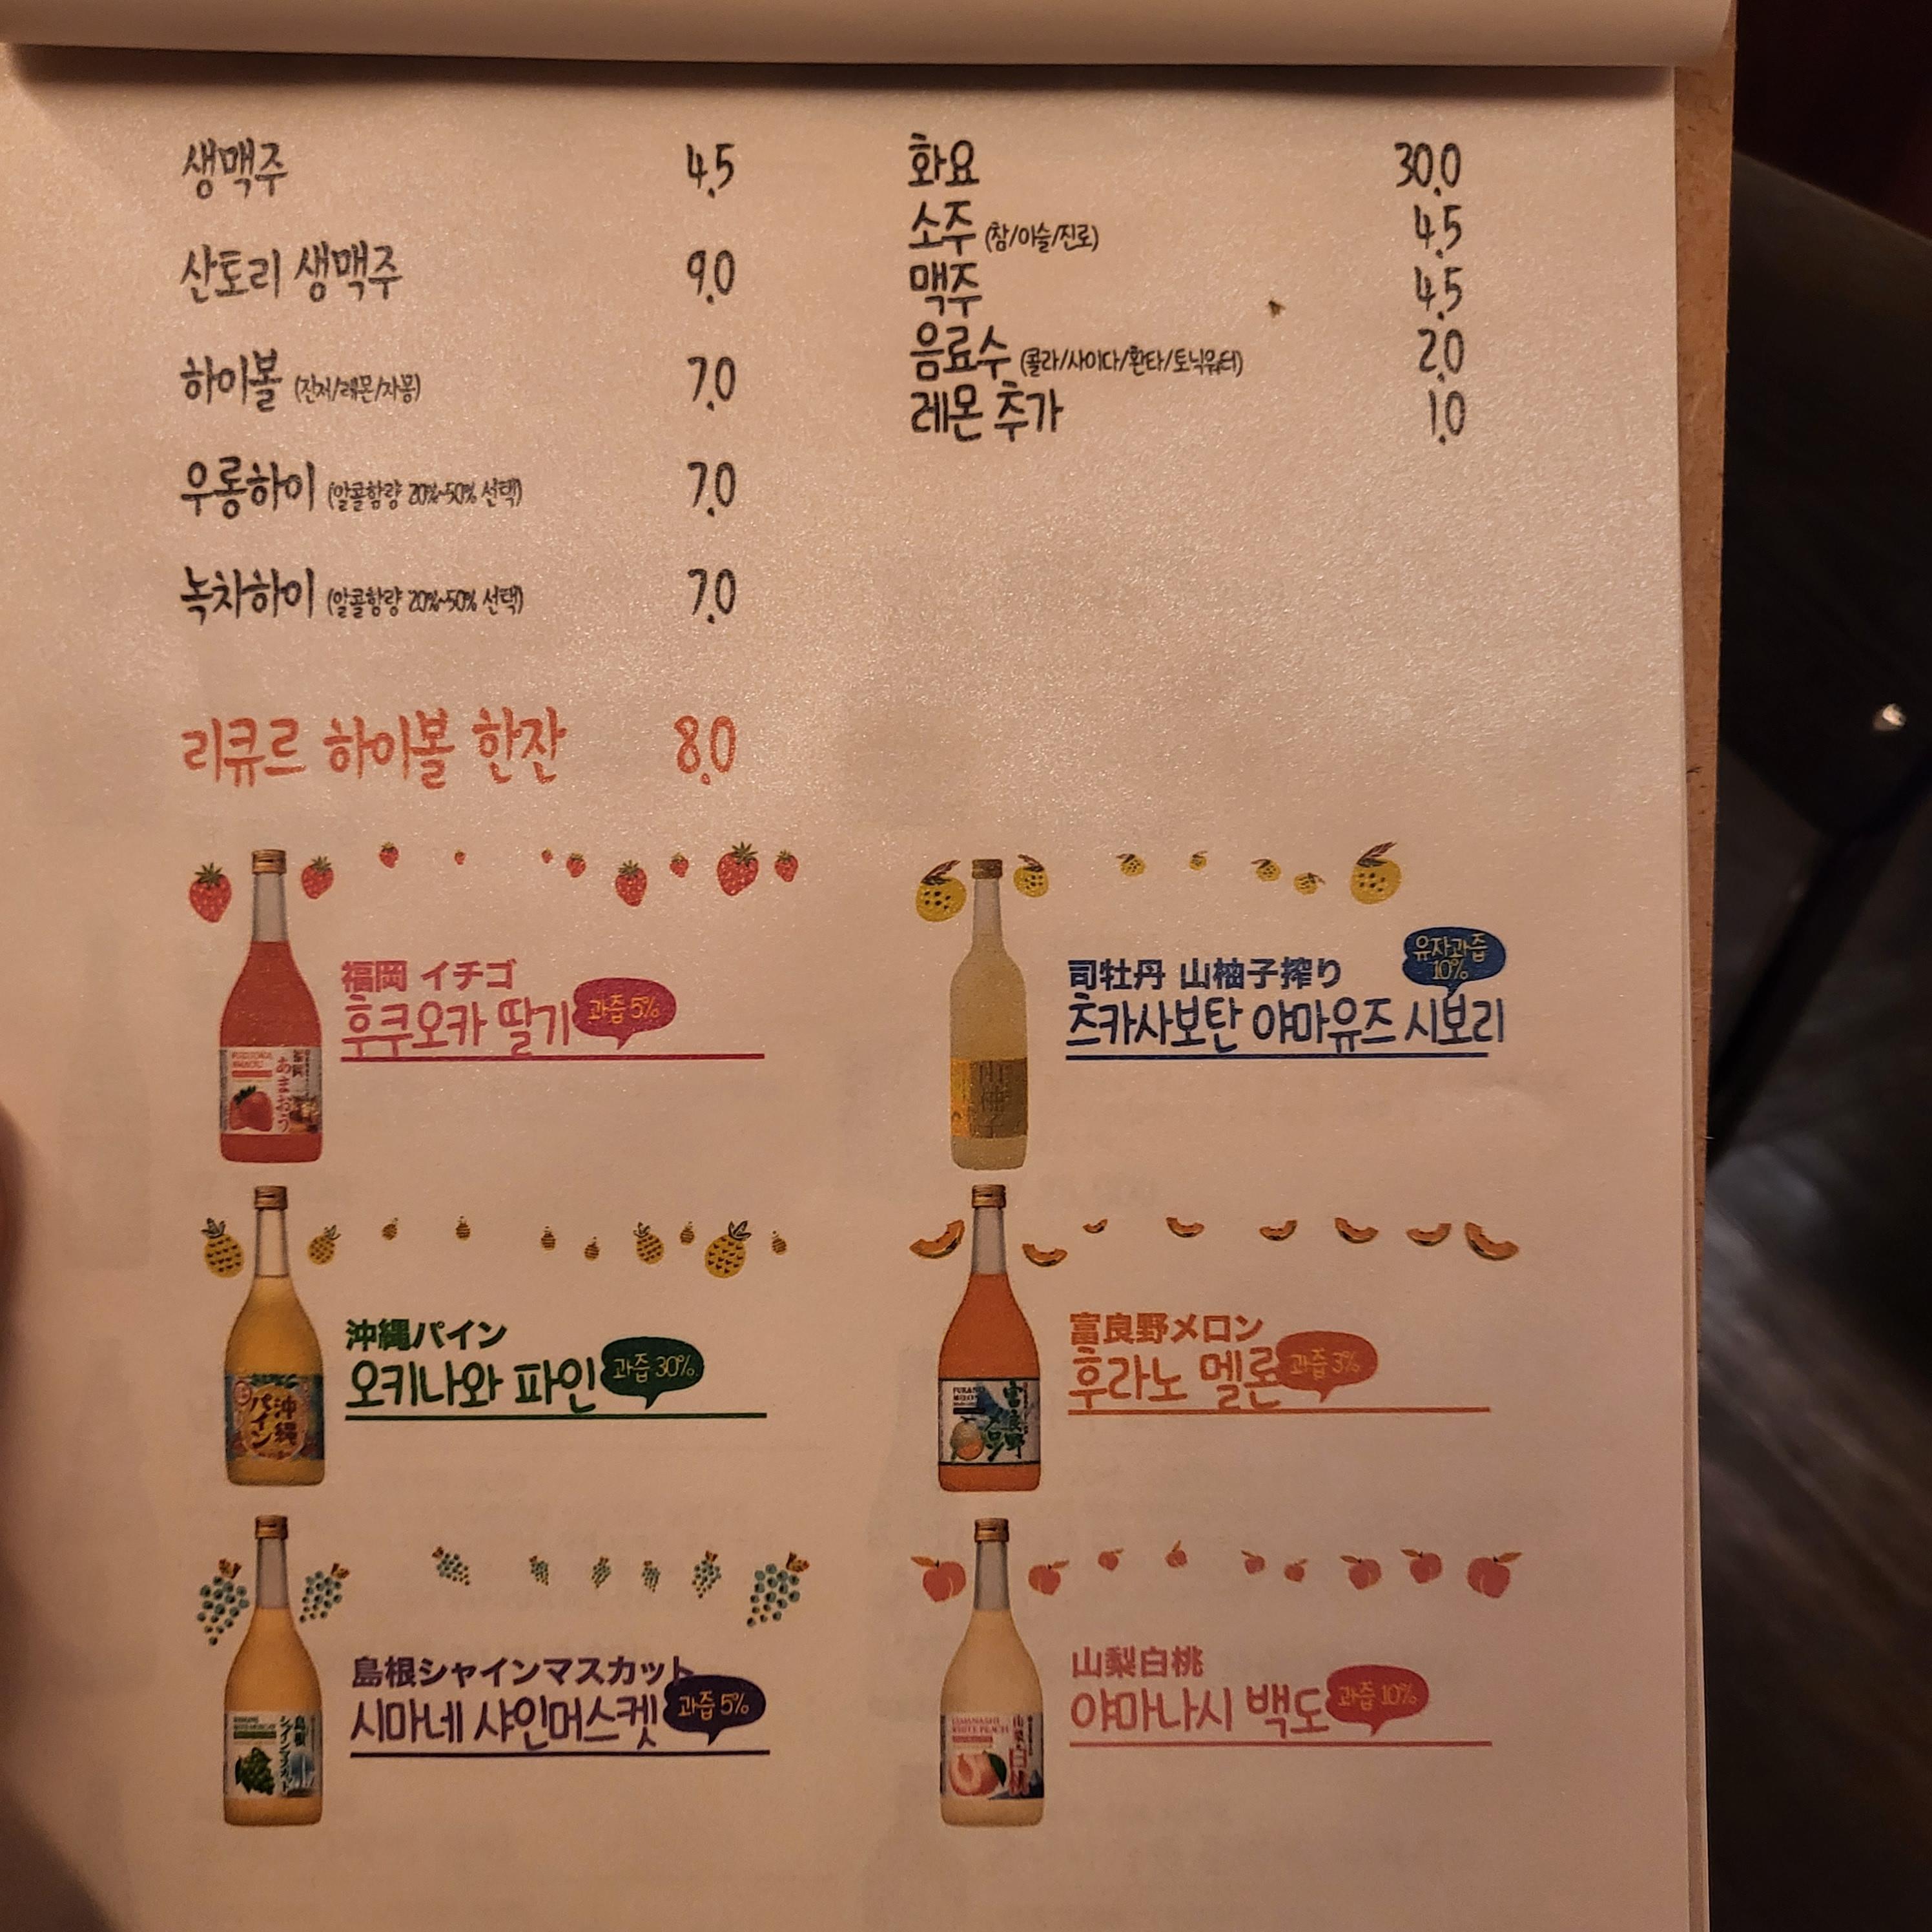 생맥주 4.5
산토리 생맥주 9.0
하이볼 (진저/레몬/자몽) 7.0
우롱하이 (알콜함량 20%~50% 선택) 7.0
녹차하이 (알콜함량 20%~50% 선택) 7.0
화요 30.0
소주 (참/이슬/진로) 4.5
맥주 4.5
음료수 (콜라/사이다/환타/토닉워터) 2.0
레몬 추가 1.0
리큐르 하이볼 한잔 8.0
福岡 イチゴ
후쿠오카 딸기 과즙 5%
福岡
あまおう
司牡丹 山柚子搾り
유자과즙
10%
츠카사보탄 야마유즈 시보리
沖縄パイン
오키나와 파인 과즙 30%
沖縄
パイン
富良野メロン
후라노 멜론 과즙 3%
FURANO
MELON
富良野
メロン
島根シャインマスカット
시마네 샤인머스켓 과즙 5%
島根
シャインマスカット
山梨白桃
야마나시 백도 과즙 10%
YAMANASHI
WHITE PEACH
山梨
白桃